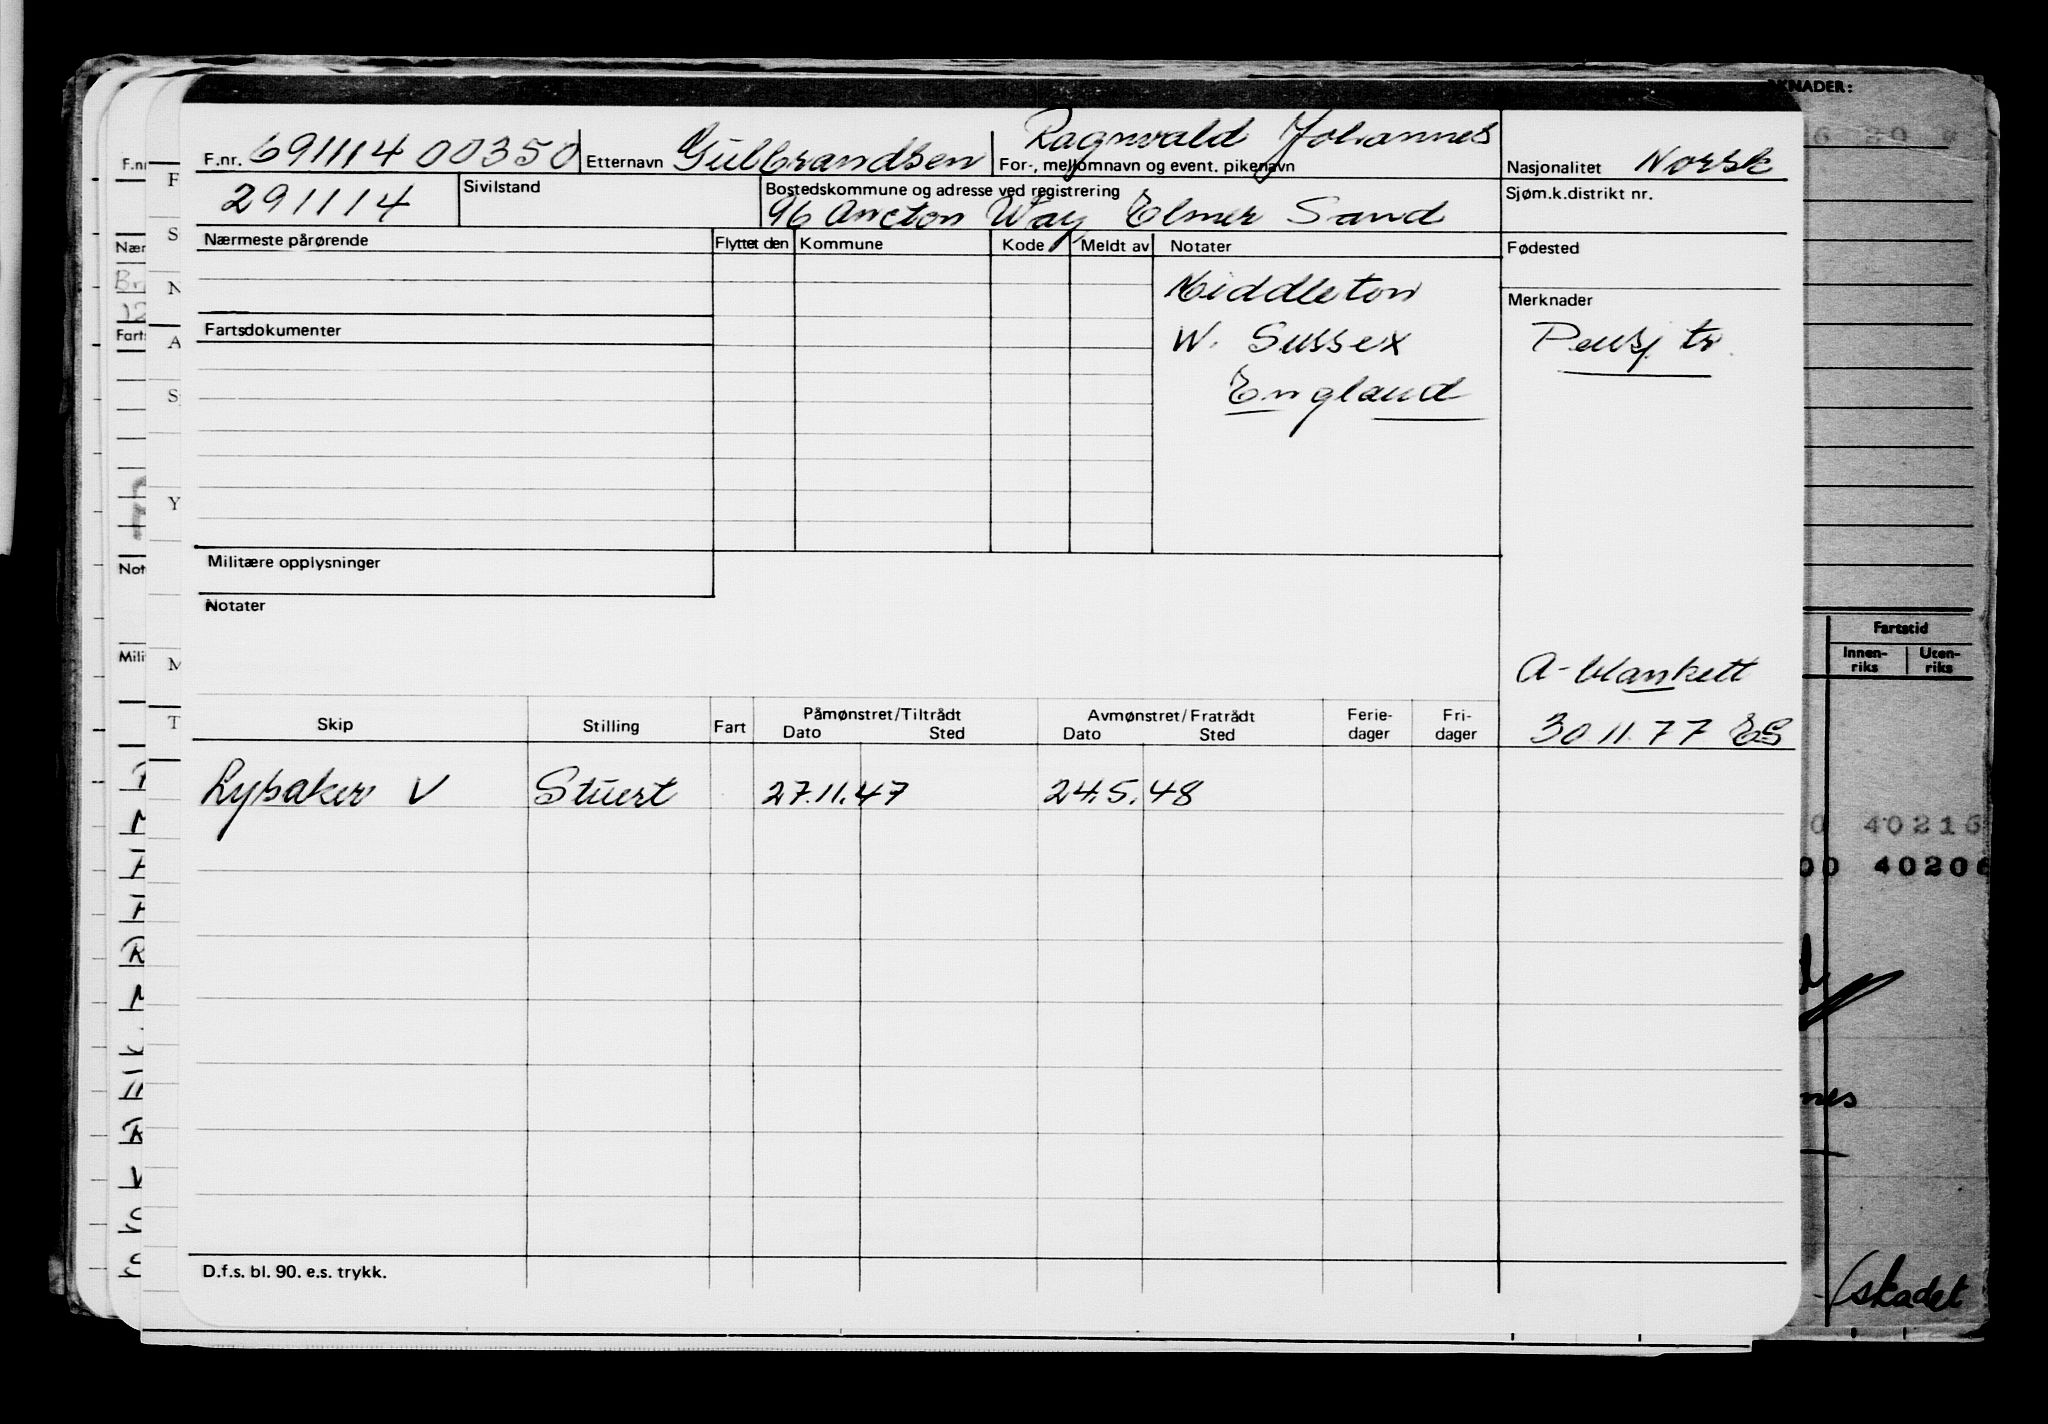 RKNADER:
F.nr. 691114 00350 Etternavn Gulbrandsen For-, mellomnavn og event. pikenavn Ragnvald Johannes Nasjonalitet Norsk
291114 Sivilstand Bostedskommune og adresse ved registrering 96 Ancton Way Elmer Sand Sjøm.k.distrikt nr.
Nærmeste pårørende Flyttet den Kommune Kode Meldt av Notater Fødested
Middleton Merknader
Fartsdokumenter W. Sussex Pensj tr.
England
Militære opplysninger
Notater
Fartstid
Innen-riks Uten-riks
A-blankett
Skip Stilling Fart Påmønstret/Tiltrådt Avmønstret/Fratrådt Ferie-dager Fri-dager
Dato Sted Dato Sted 30.11.77 ES
Lysaker V Stuert 27.11.47 24.5.48
40216
00 40206
nes
(skadet
D.f.s. bl. 90. e.s. trykk.